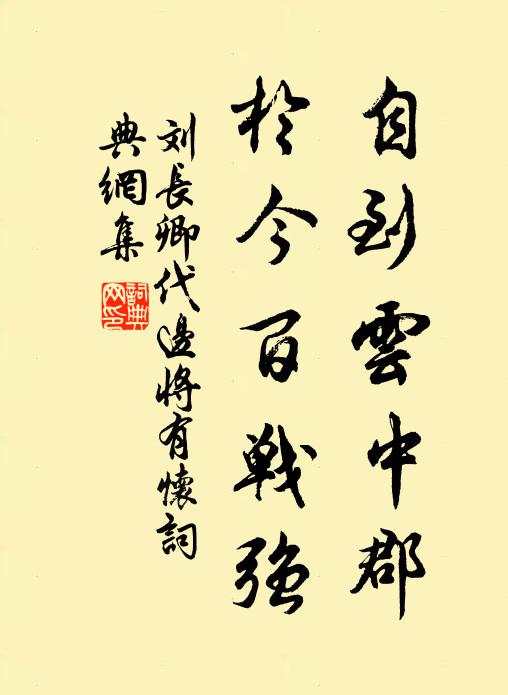 自到雲中郡
於今百戰强
刘長卿代邊將有懷詞
典網集
詞典网印